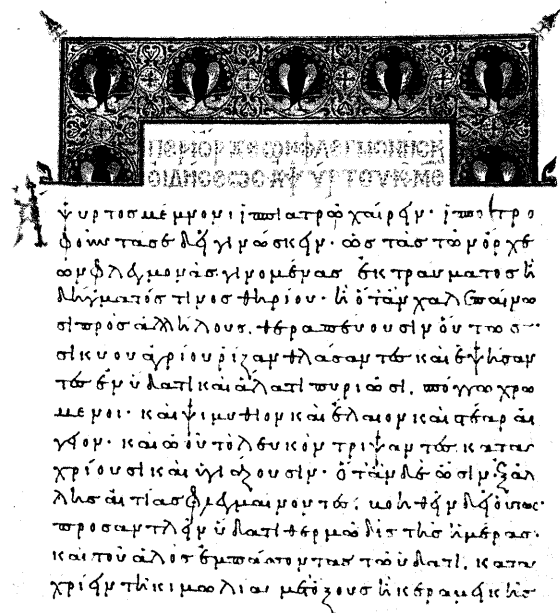 ΠΕΡΙ ΟΡΧΕΩΝ ΦΛΕΓΜΟΝΗΣ Κ
ΟΙΔΗΣΕΩΣ ΑΨΥΡΤΟΥ
Ἄψυρτος μέμνονι ἱπποιατρῶ χαίρειν· ἱπποτρο
φοῦντα σε δεῖ γινώσκειν· ὡς τὰς τῶν ὄρχε
ων φλεγμονὰς γινομένας ἐκ τραύματος ἢ
δήγματός τινος θηρίου· ἢ ὅταν χαλεπαίνω
σι πρὸς ἀλλήλους, θεραπεύουσιν οὕτως·
σικύου ἀγρίου ῥίζαν θλάσαντες καὶ ἑψήσαν
τες ἐν ὕδατι καὶ ἅλατι πυριῶσι, σπόγγω χρώ
μενοι· καὶ ψιμύθιον καὶ ἔλαιον καὶ στέαρ αἴ
γειον· καὶ ὠοῦ τὸ λευκὸν τρίψαντες κατα
χρίουσι καὶ ὑγιάζουσιν· ὅταν δὲ ὦσιν ἐξ ἄλ
λης αἰτίας φλεγμαίνοντες,
προσαντλεῖν ὕδατι θερμῶ δὶς τῆς ἡμέρας·
καὶ τοῦ ἁλὸς ἐμπάσσοντας τῶ ὕδατι, κατα
χρίειν τῆ κιμωλία μετ' ὄξους ἢ κεραμικῆς